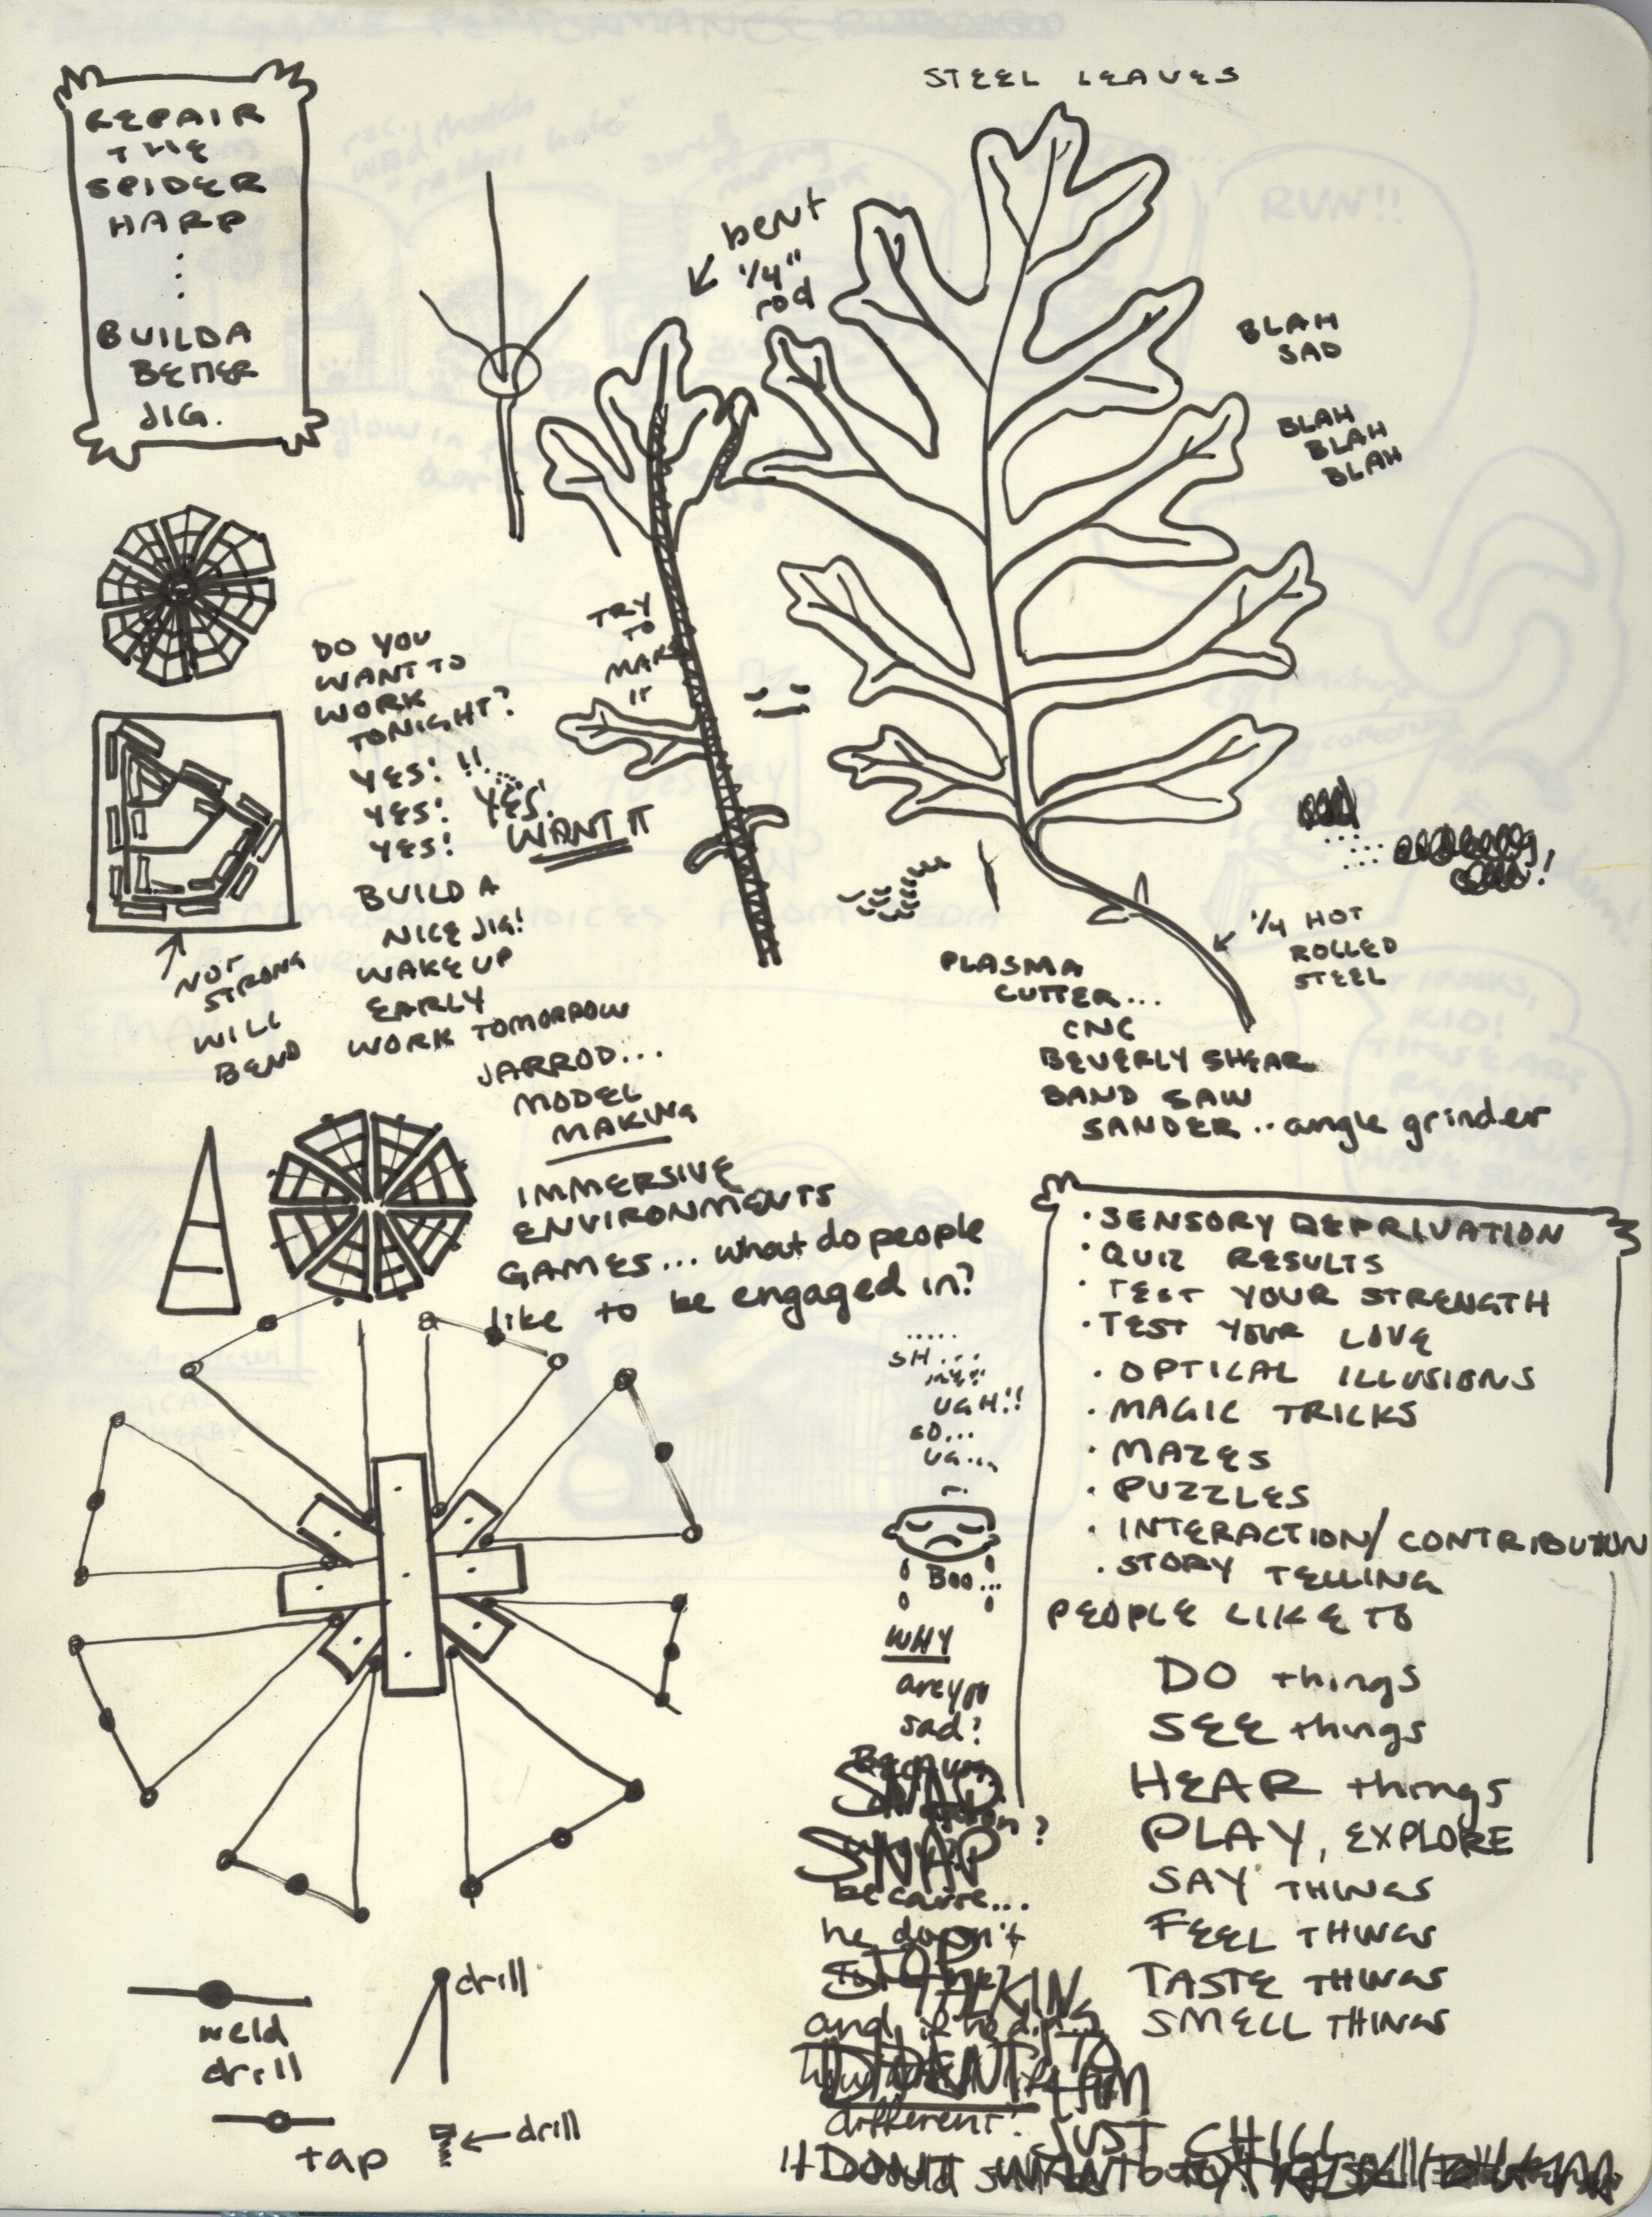 STEEL LEAVES
REPAIR
THE
SPIDER
HARP
BUILD A
BETTER
JIG.
bent
1/4"
rod
RUN!!
BLAH
SAD
BLAH
BLAH
BLAH
TRY
TO
MAKE
IT
DO YOU
WANT TO
WORK
TONIGHT?
YES! !!....
YES! YES!
YES! WANT IT
BUILD A
NICE JIG!
WAKE UP
EARLY
WORK TOMORROW
JARROD...
MODEL
MAKING
NOT
STRONG
WILL
BEND
1/4 HOT
ROLLED
STEEL
PLASMA
CUTTER...
CNC
BEVERLY SHEAR
BAND SAW
SANDER.. angle grinder
IMMERSIVE
ENVIRONMENTS
GAMES... what do people
like to be engaged in?
· SENSORY DEPRIVATION
· QUIZ RESULTS
· TEST YOUR STRENGTH
· TEST YOUR LOVE
· OPTICAL ILLUSIONS
· MAGIC TRICKS
· MAZES
· PUZZLES
· INTERACTION/CONTRIBUTION
· STORY TELLING
PEOPLE LIKE TO
DO things
SEE things
HEAR things
PLAY, EXPLORE
SAY THINGS
FEEL THINGS
TASTE THINGS
SMELL THINGS
.....
SH...
UGH!!
SO...
UG...
BOO...
WHY
are you
sad?
Because
SNAP
SNAP
because...
he doesn't
STOP
TALKIN
TO
I DON'T
HIM
different?
JUST CHILL
drill
weld
drill
tap
drill